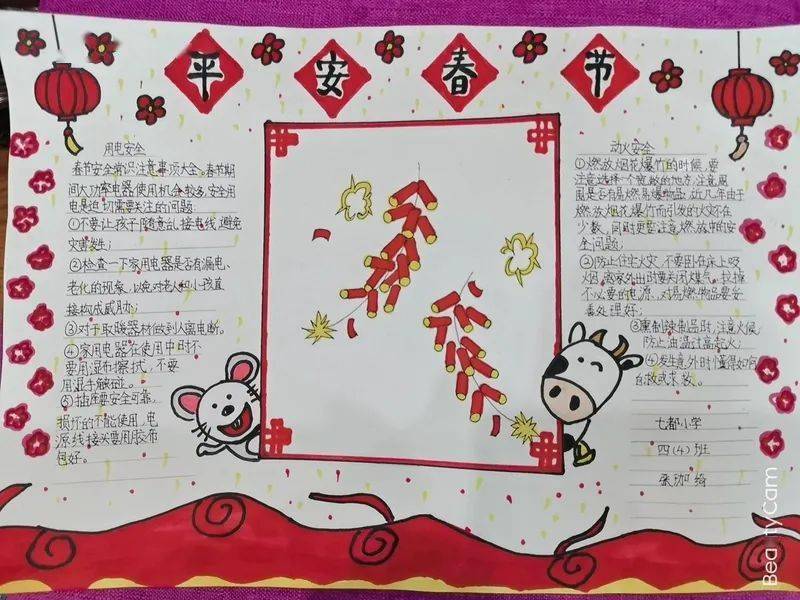 平安春节
用电安全
春节安全常识注意事项大全。春节期
间大功率电器使用机会较多,安全用
电是迫切需要关注的问题
①不要让孩子随意乱接电线,避免
灾害发生;
②检查一下家用电器是否有漏电、
老化的现象,以免对老人和小孩直
接构成威胁;
③对于取暖器材做到人离电断。
④家用电器在使用中时不
要用湿布擦拭,不要
用湿手触碰。
⑤插座要安全可靠,
损坏的不能使用,电
源线接头要用胶布
包好。
动火安全
①燃放烟花爆竹的时候,要
注意选择一个宽敞的地方,注意周
围是否有易燃易爆物品,近几年由于
燃放烟花爆竹而引发的火灾不在
少数,同时更要注意燃放中的安
全问题;
②防止住宅火灾,不要卧在床上吸
烟,离家外出时要关闭煤气,拉掉
不必要的电源,对易燃物品要妥
善处理好;
③熏制辣制品时,注意火候,
防止油温过高起火;
④发生意外时懂得如何
自救或求救。
七都小学
四(4)班
张珈绮
BeautyCam